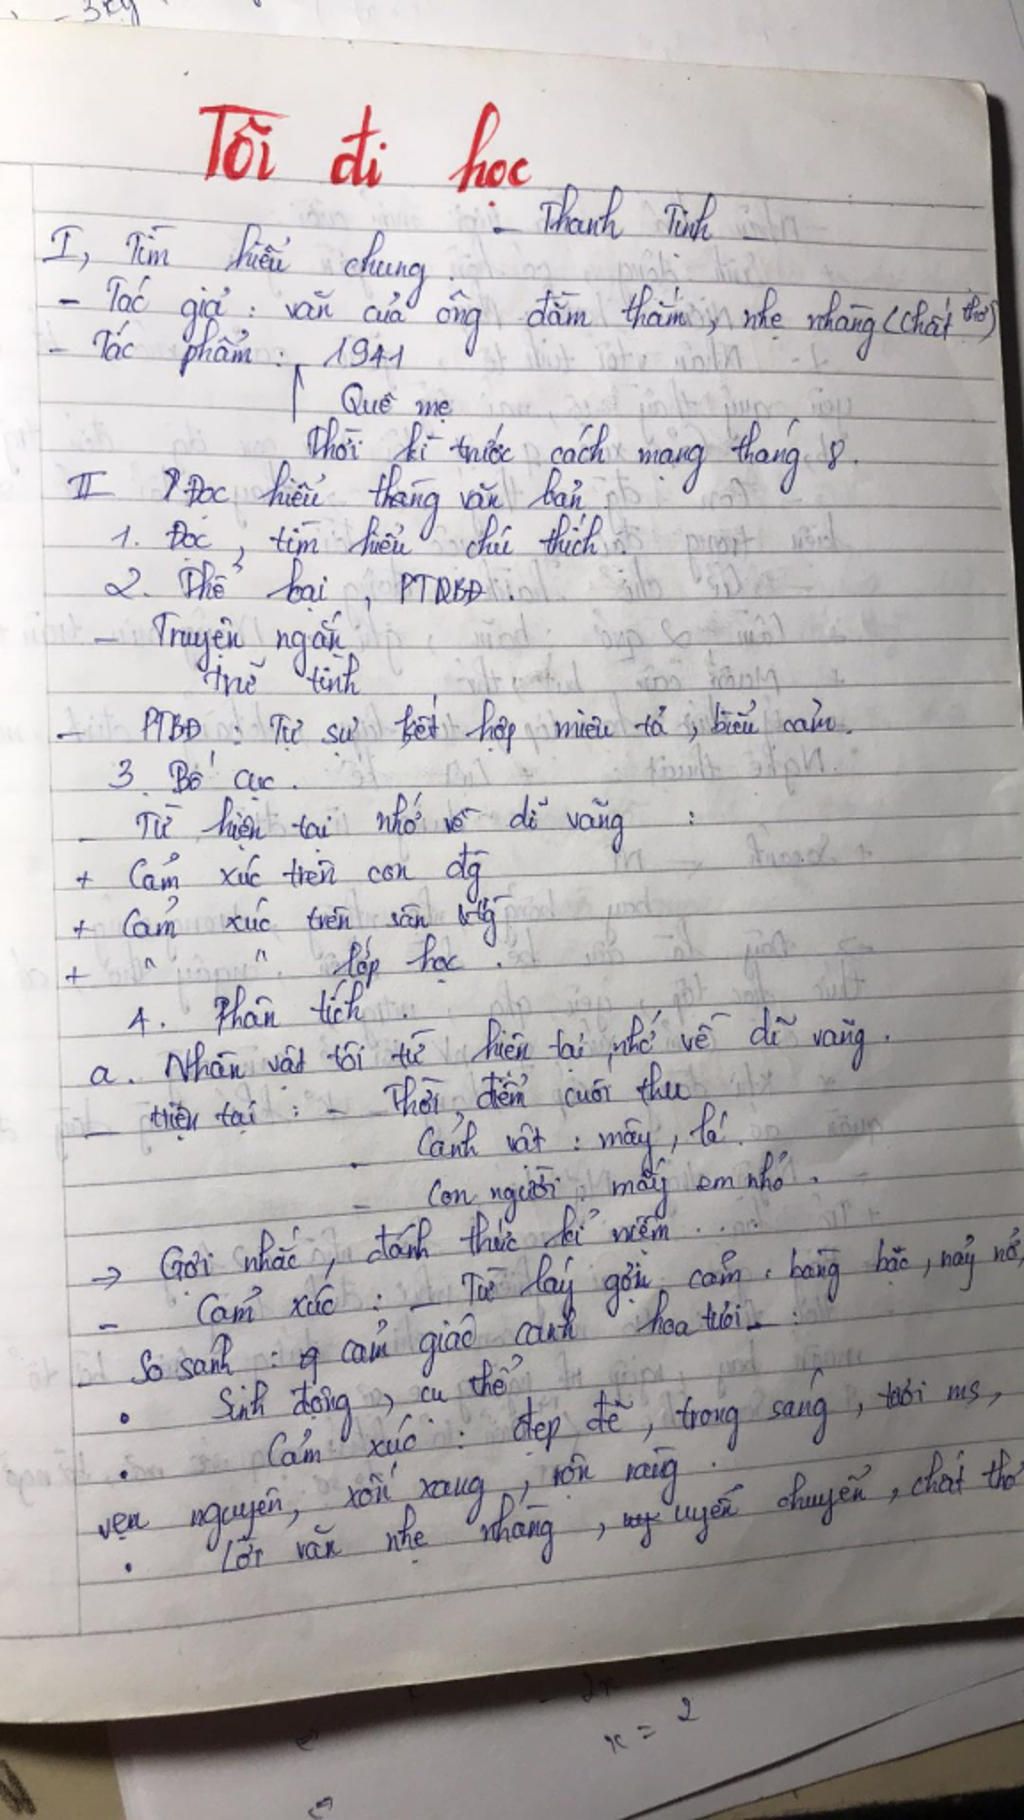 Tôi đi học
- Thanh Tịnh -
I, Tìm hiểu chung
- Tác giả : văn của ông đằm thắm, nhẹ nhàng (chất thơ)
- Tác phẩm : 1941
Quê mẹ
Thời kì trước cách mạng tháng 8.
II Đọc hiểu thăng văn bản
1. Đọc, tìm hiểu chú thích
2. Thể loại, PTDBĐ.
- Truyện ngắn
trữ tình
- PTBĐ : Tự sự kết hợp miêu tả, biểu cảm.
3. Bố cục.
- Từ hiện tại nhớ về dĩ vãng :
+ Cảm xúc trên con đg
+ Cảm xúc trên sân trg
+ " " lớp học.
4. Phân tích.
a. Nhân vật tôi từ hiện tại nhớ về dĩ vãng.
- Hiện tại : - Thời điểm cuối thu
- Cảnh vật : mây, lá.
- Con người : mấy em nhỏ.
→ Gợi nhắc, đánh thức kỉ niệm...
- Cảm xúc : - Từ láy gợi cảm : bâng bấc, nảy nở,
- So sánh : cảm giác cành hoa tươi - :
• Sinh động, cụ thể
• Cảm xúc : đẹp đẽ, trong sáng, tươi ms,
vẹn nguyên, xốn xang, rộn ràng.
• Lời văn nhẹ nhàng, uyển chuyển, chất thơ
x = 2